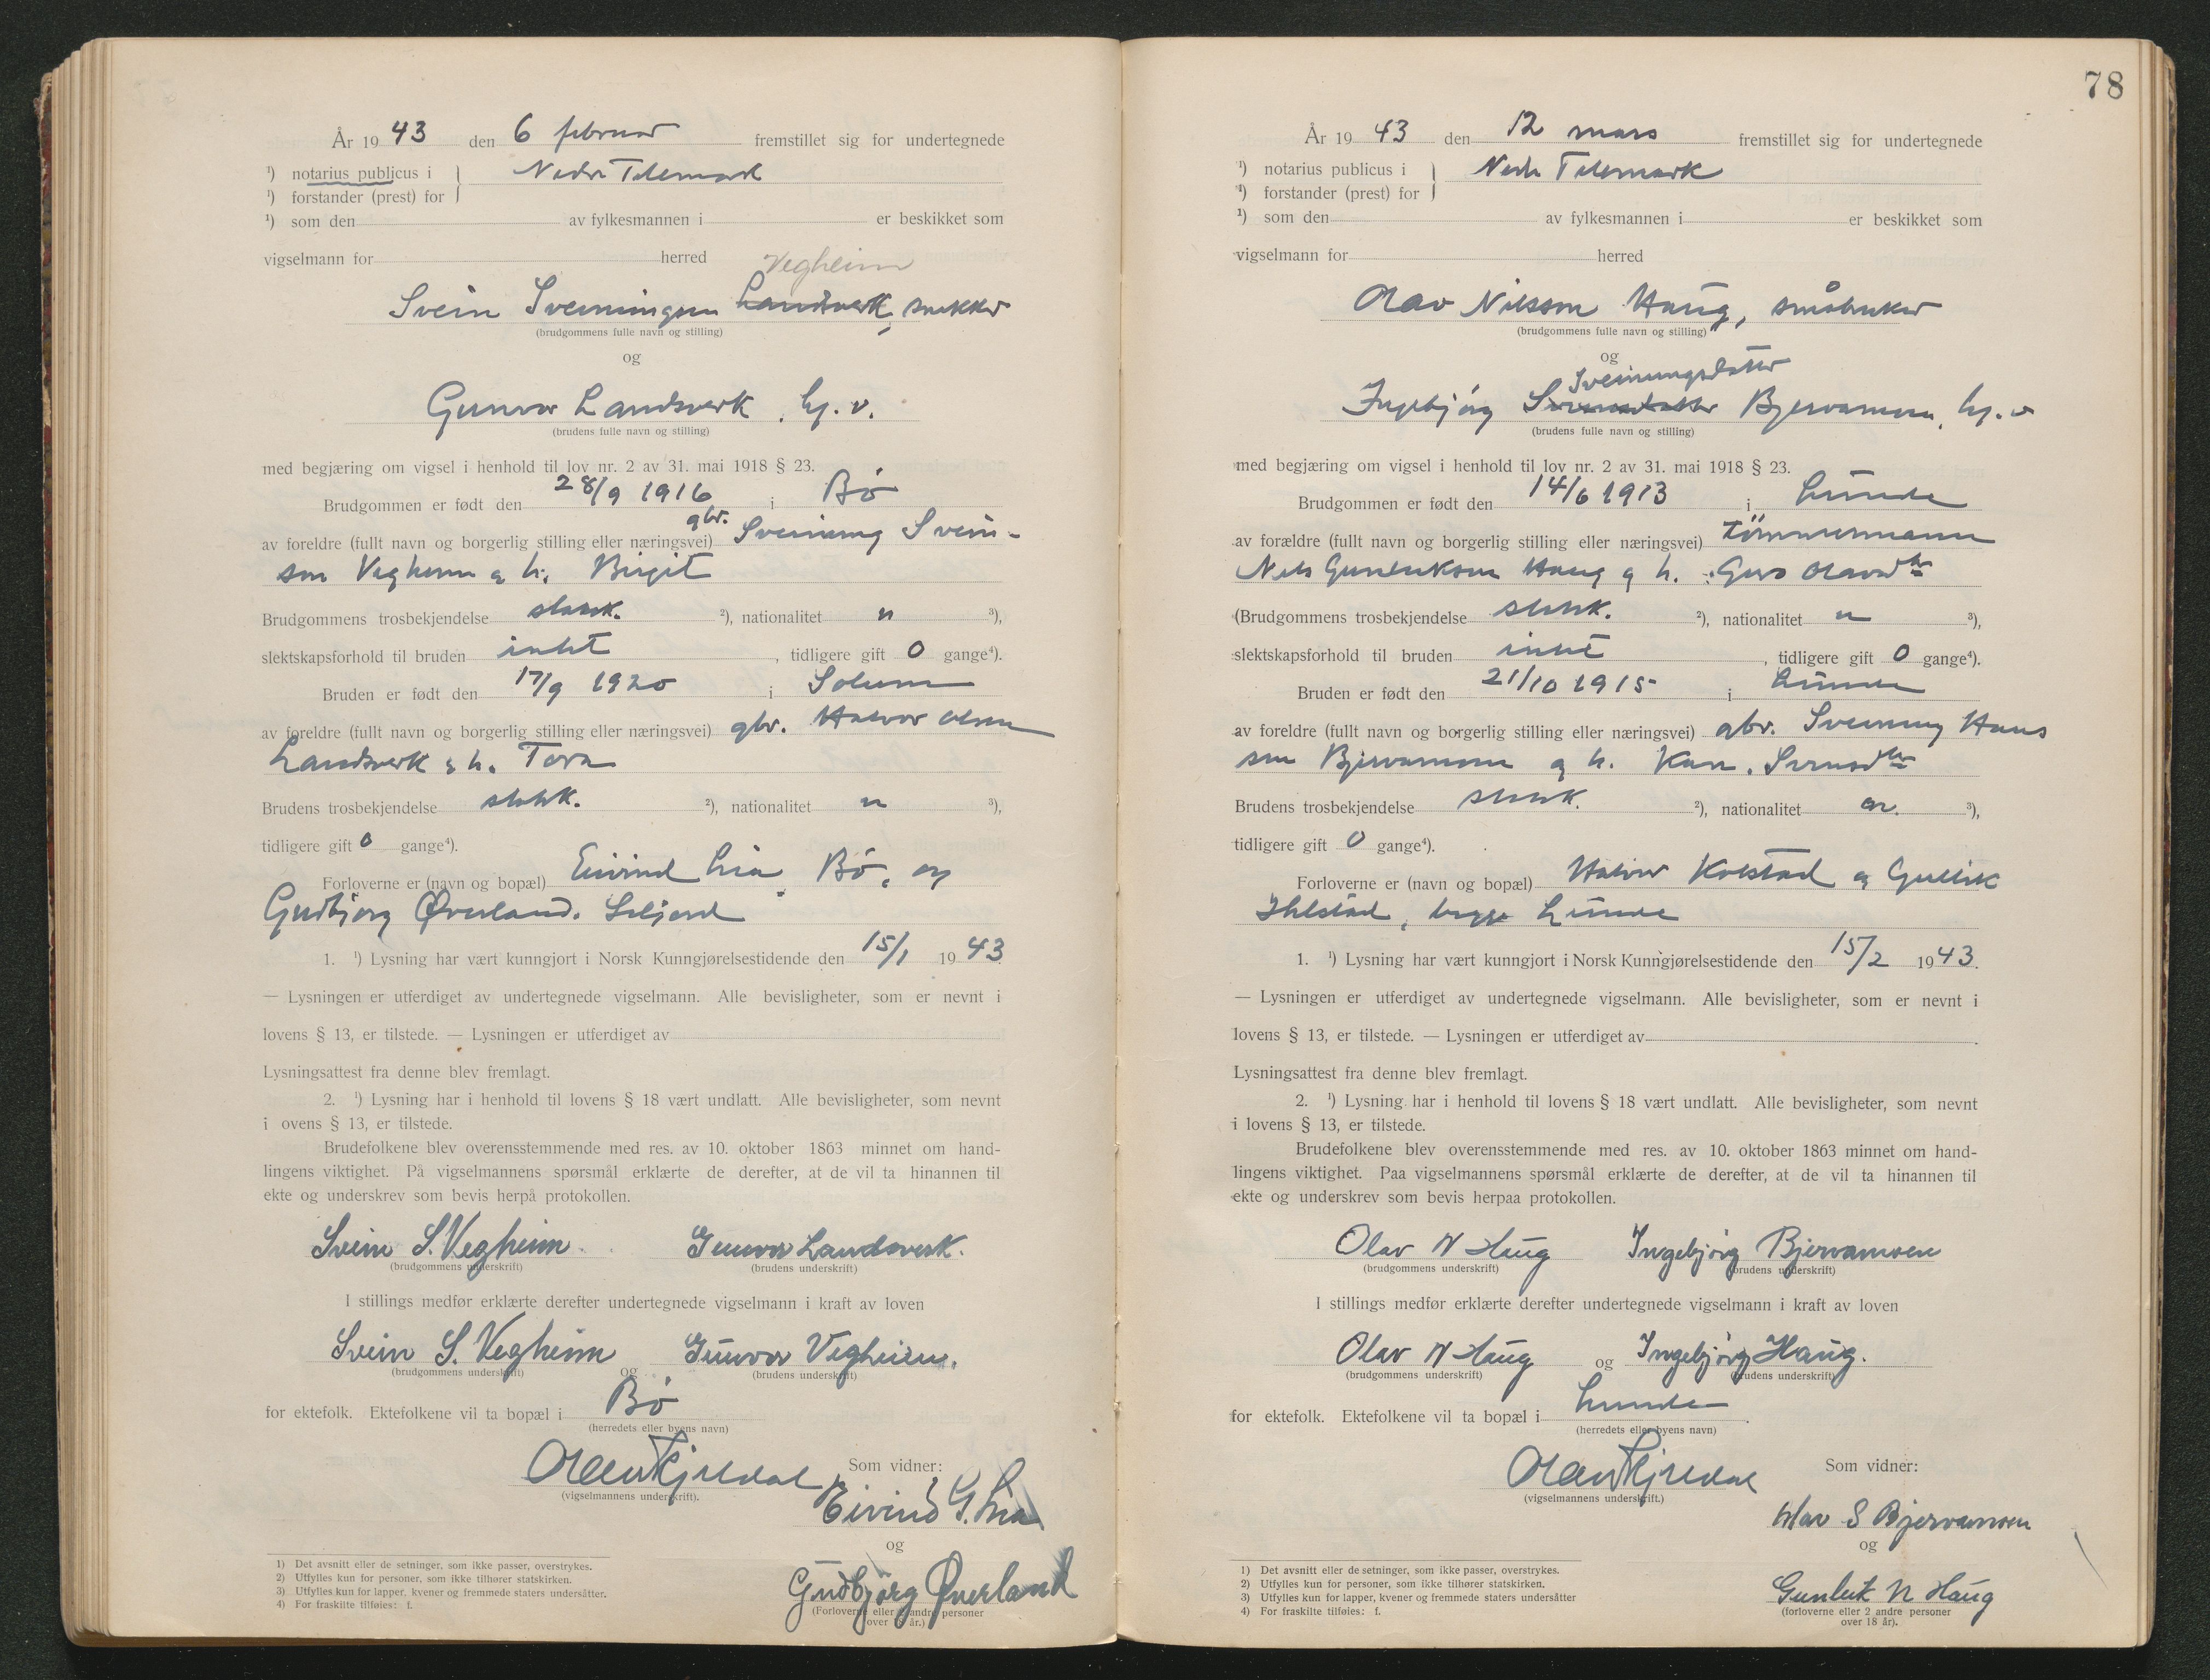 År 19 43 den 6 februar fremstillet sig for undertegnede
¹) notarius publicus i } Nedre Telemark
¹) forstander (prest) for
¹) som den av fylkesmannen i er beskikket som
vigselmann for herred Vegheim
Svein Sveinungsen Landsverk, snekker
(brudgommens fulle navn og stilling)
og
Gunvor Landsverk, hj. v.
(brudens fulle navn og stilling)
med begjæring om vigsel i henhold til lov nr. 2 av 31. mai 1918 § 23.
Brudgommen er født den 28/9 1916 i Bø
av foreldre (fullt navn og borgerlig stilling eller næringsvei) gbr. Sveinung Svein-
son Vegheim og h. Birgit
Brudgommens trosbekjendelse statsk. ²), nationalitet n ³),
slektskapsforhold til bruden intet, tidligere gift 0 gange⁴).
Bruden er født den 17/9 1920 i Solum
av foreldre (fullt navn og borgerlig stilling eller næringsvei) gbr. Halvor Olsen
Landsverk og h. Tora
Brudens trosbekjendelse statsk. ²), nationalitet n ³),
tidligere gift 0 gange⁴).
Forloverne er (navn og bopæl) Eivind Lia, Bø, og
Gudbjørg Øverland, Seljord
1. ¹) Lysning har vært kunngjort i Norsk Kunngjørelsestidende den 15/1 19 43.
— Lysningen er utferdiget av undertegnede vigselmann. Alle bevisligheter, som er nevnt i
lovens § 13, er tilstede. — Lysningen er utferdiget av
Lysningsattest fra denne blev fremlagt.
2. ¹) Lysning har i henhold til lovens § 18 vært undlatt. Alle bevisligheter, som nevnt
i ovens § 13, er tilstede.
Brudefolkene blev overensstemmende med res. av 10. oktober 1863 minnet om hand-
lingens viktighet. På vigselmannens spørsmål erklærte de derefter, at de vil ta hinannen til
ekte og underskrev som bevis herpå protokollen.
Svein S. Vegheim. Gunvor Landsverk.
(brudgommens underskrift) (brudens underskrift)
I stillings medfør erklærte derefter undertegnede vigselmann i kraft av loven
Svein S. Vegheim og Gunvor Vegheim.
(brudgommens underskrift) (brudens underskrift)
for ektefolk. Ektefolkene vil ta bopæl i Bø
(herredets eller byens navn)
Olav Kjeldal Som vidner:
(vigselmannens underskrift).
Eivind G. Lia
og
Gudbjørg Øverland
(Forloverne eller 2 andre personer
over 18 år.)
1) Det avsnitt eller de setninger, som ikke passer, overstrykes.
2) Utfylles kun for personer, som ikke tilhører statskirken.
3) Utfylles kun for lapper, kvener og fremmede staters undersåtter.
4) For fraskilte tilføies: f.
78
År 19 43 den 12 mars fremstillet sig for undertegnede
¹) notarius publicus i } Nedre Telemark
¹) forstander (prest) for
¹) som den av fylkesmannen i er beskikket som
vigselmann for herred
Olav Nilsson Haug, småbruker
(brudgommens fulle navn og stilling)
og
Sveinungsdatter
Ingebjørg Svensdatter Bjervamoen, hj. v
(brudens fulle navn og stilling)
med begjæring om vigsel i henhold til lov nr. 2 av 31. mai 1918 § 23.
Brudgommen er født den 14/6 1913 i Lunde
av forældre (fullt navn og borgerlig stilling eller næringsvei) tömmermann
Nils Gunleikson Haug og h. Guro Olavsdtr
(Brudgommens trosbekjendelse statsk. ²), nationalitet n ³),
slektskapsforhold til bruden intet, tidligere gift 0 gange⁴).
Bruden er født den 21/10 1915 i Lunde
av foreldre (fullt navn og borgerlig stilling eller næringsvei) gbr. Sveinung Hans
son Bjervamoen og h. Karen Svensdtr
Brudens trosbekjendelse statsk. ²), nationalitet n. ³),
tidligere gift 0 gange⁴).
Forloverne er (navn og bopæl) Halvor Kolstad og Gullik
Ihlstad, begge Lunde
1. ¹) Lysning har vært kunngjort i Norsk Kunngjørelsestidende den 15/2 19 43.
— Lysningen er utferdiget av undertegnede vigselmann. Alle bevisligheter, som er nevnt i
lovens § 13, er tilstede. — Lysningen er utferdiget av
Lysningsattest fra denne blev fremlagt.
2. ¹) Lysning har i henhold til lovens § 18 vært undlatt. Alle bevisligheter, som nevnt
i lovens § 13, er tilstede.
Brudefolkene blev overensstemmende med res. av 10. oktober 1863 minnet om hand-
lingens viktighet. Paa vigselmannens spørsmål erklærte de derefter, at de vil ta hinannen til
ekte og underskrev som bevis herpaa protokollen.
Olav N Haug Ingebjørg Bjervamoen
(brudgommens underskrift) (brudens underskrift)
I stillings medfør erklærte derefter undertegnede vigselmann i kraft av loven
Olav N Haug og Ingebjørg Haug.
(brudgommens underskrift) (brudens underskrift)
for ektefolk. Ektefolkene vil ta bopæl i Lunde.
(herredets eller byens navn)
Olav Kjeldal Som vidner:
(vigselmannens underskrift.)
Olav S Bjervamoen
og
Gunleik N Haug
(forloverne eller 2 andre personer
over 18 år).
1) Det avsnitt eller de setninger, som ikke passer, overstrykes.
2) Utfylles kun for personer, som ikke tilhører statskirken.
3) Utfylles kun for lapper, kvener og fremmede staters undersåtter
4) For fraskilte tilføies: f.